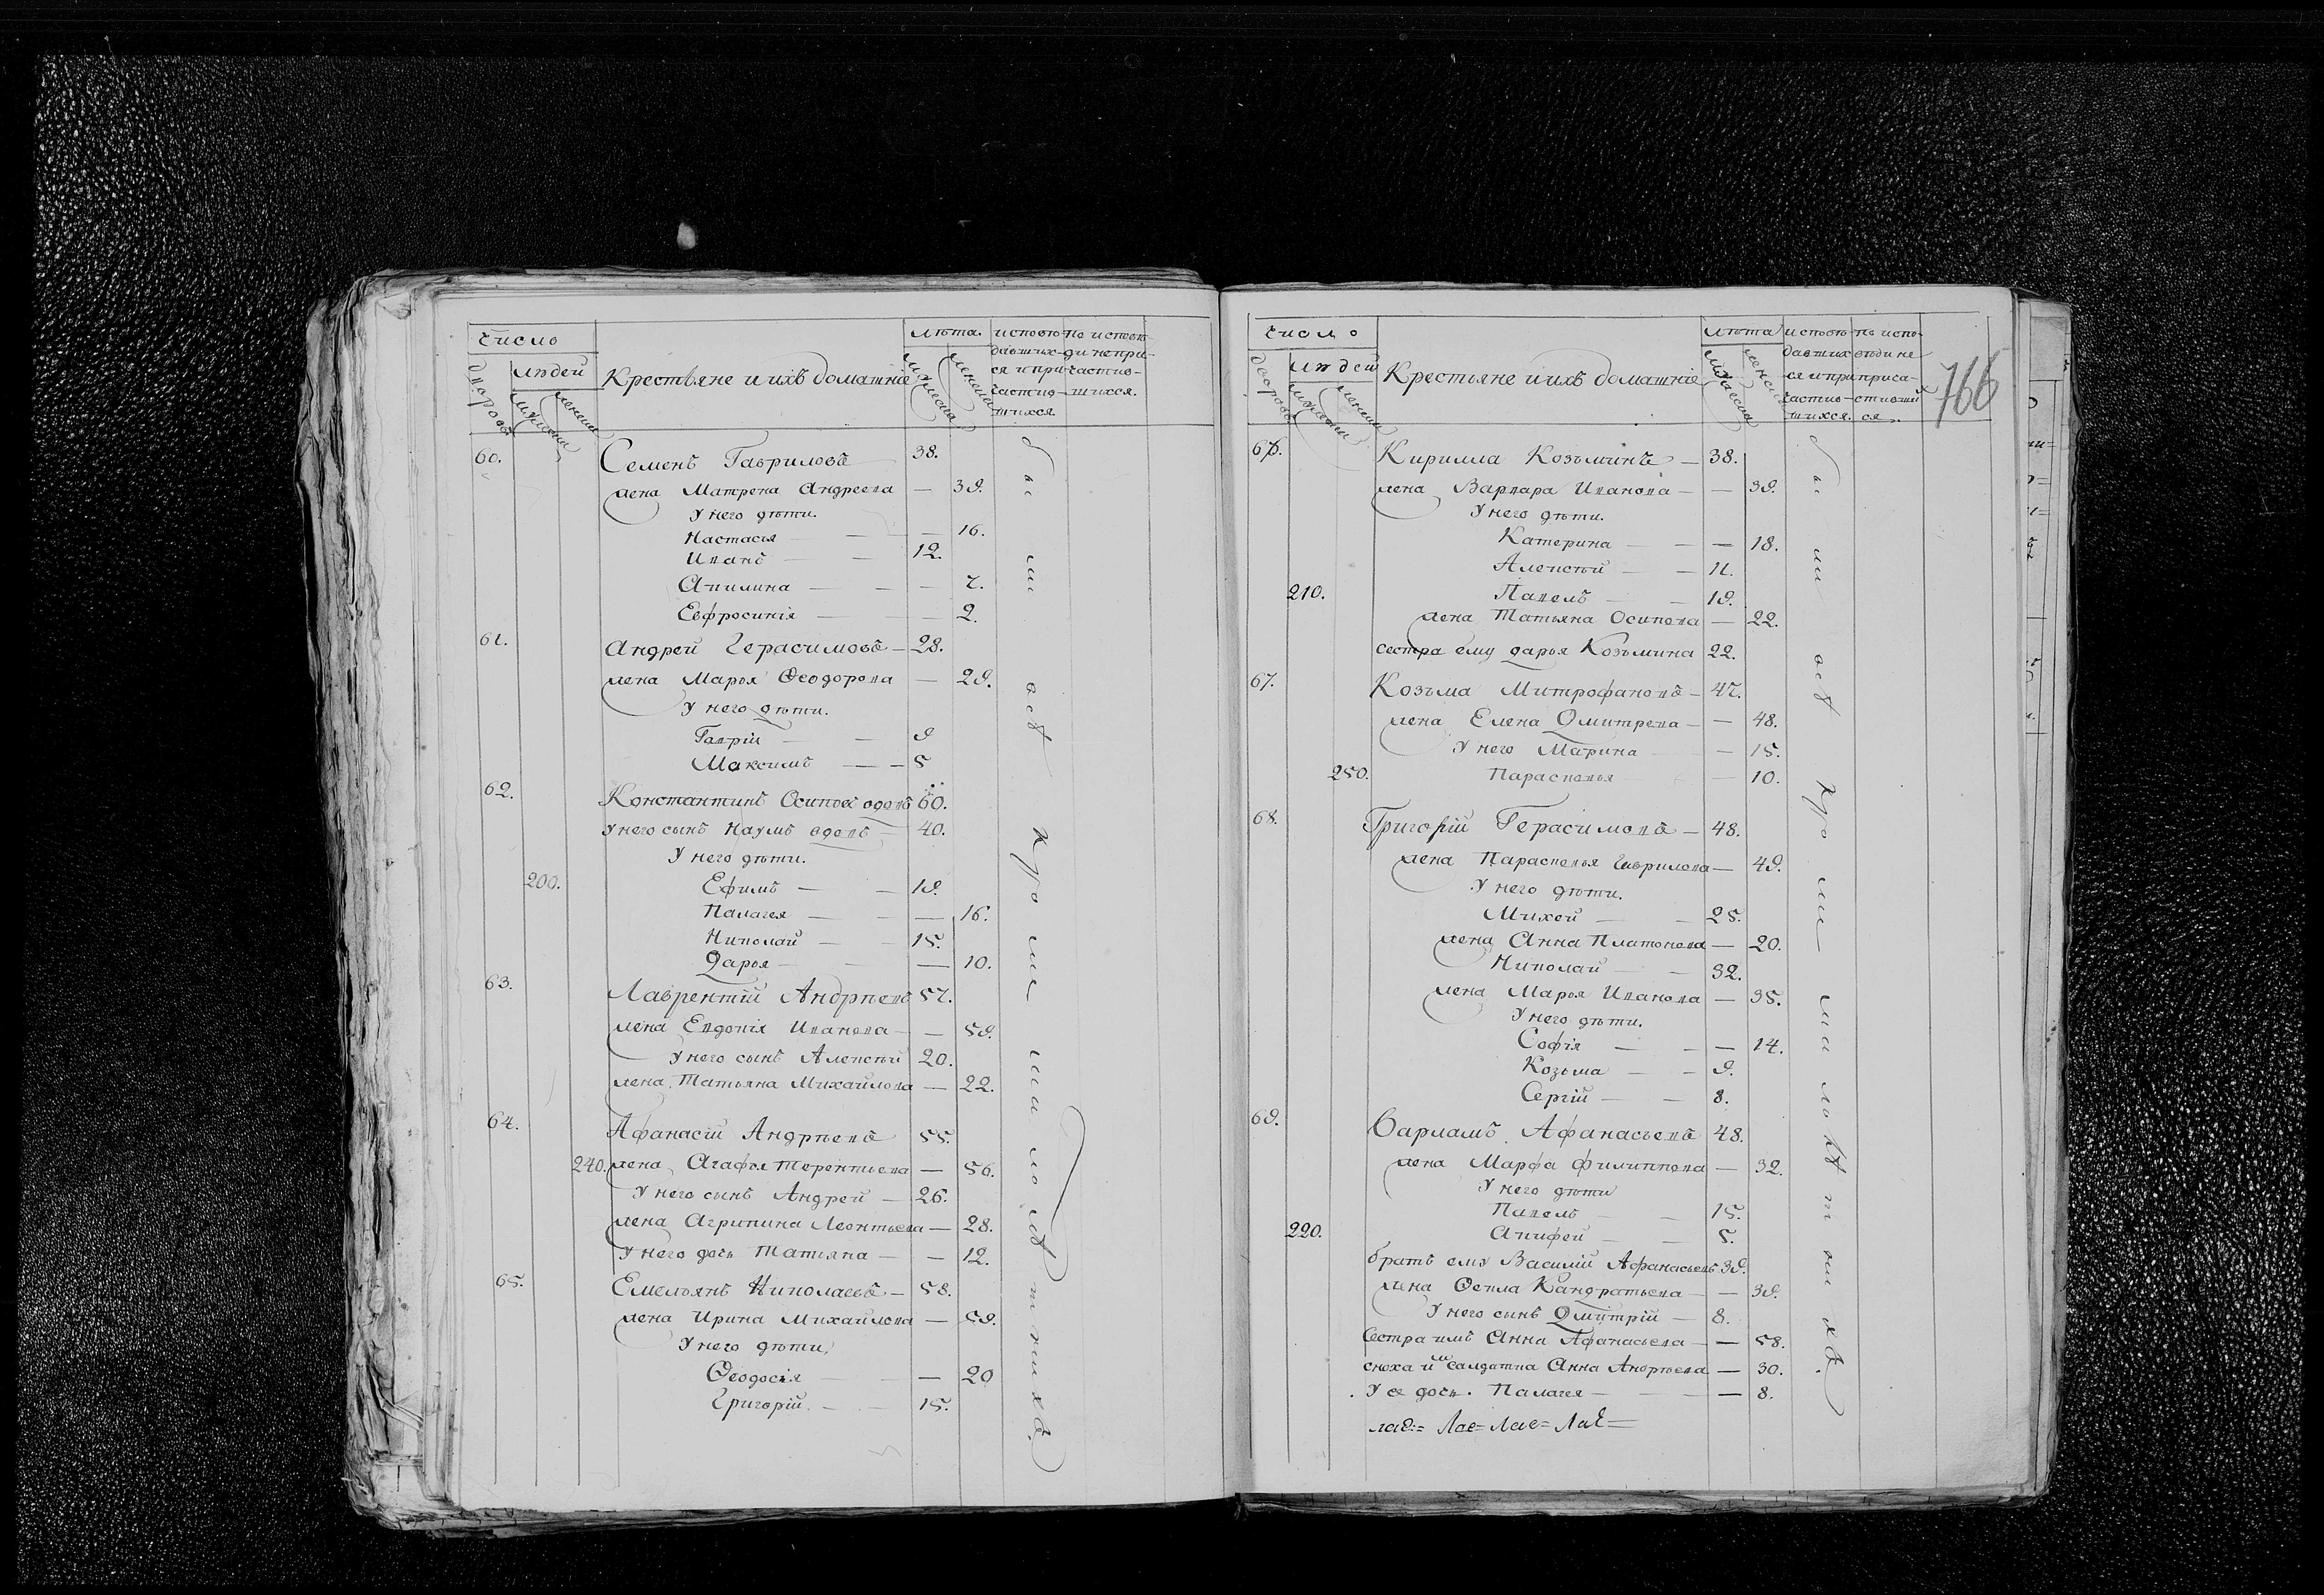 Число
людей
Крестьяне и ихъ домашніе
лѣта.
исповѣ-
давших-
ся и при-
частив-
шихся
по исповѣ-
ди непри-
частив-
шихся.
дворовъ
мужеска
женска
мужеска
женска
60. Семенъ Гавриловъ 38.
жена Матрена Андреева — 39.
У него дѣти.
Настасья — 16.
Иванъ — 12.
Акилина — 7.
Евфросинія — 2.
61. Андрей Герасимовъ — 28.
жена Марья Ѳеодорова — 29.
У него дѣти.
Гаврій — 9
Максимъ — 5
62. Константинъ Осиповъ вдовъ 60.
У него сынъ Наумъ вдовъ — 40.
У него дѣти.
200. Ефимъ — 19.
Палагея — 16.
Николай — 15.
Дарья — 10.
63. Лаврентій Андрѣевъ 57.
жена Евдокія Иванова — 59.
У него сынъ Алексѣй 20.
жена Татьяна Михайлова — 22.
64. Афанасій Андрѣевъ 55.
240. жена Агафья Терентьева — 56.
У него сынъ Андрей — 26.
жена Агрипина Леонтьева — 28.
У него дочь Татьяна — 12.
65. Емельянъ Николаевъ — 58.
жена Ирина Михайлова — 59.
У него дѣти,
Ѳеодосія — 20
Григорій — 15.
бы ли всѣ кро ме ма ло лѣ т ни хъ
Число
людей
Крестьяне и ихъ домашніе
лѣта
исповѣ-
давших
ся и при
частив-
шихся.
по испо-
вѣди не
приса-
стивши
ся.
766
дворовъ
мужеска
женска
мужеска
женска
66. Кирилла Козьминъ — 38.
жена Варвара Иванова — 39.
У него дѣти.
Катерина — 18.
Алексѣй — 11.
210. Павелъ — 19.
жена Татьяна Осипова — 22.
сестра ему дарья Козьмина 22.
67. Козьма Митрофановъ — 47.
жена Елена Дмитрева — 48.
У него Марина — 15.
250. Парасковья — 10.
68. Григорій Герасимовъ — 48.
жена Парасковья Гаврилова — 49.
У него дѣти.
Михей — 25.
жена Анна Платонова — 20.
Николай — 32.
жена Марья Иванова — 35.
У него дѣти.
Софія — 14.
Козьма — 9.
Сергій — 8.
69. Варламъ Афанасьевъ 48.
жена Марфа Филиппова — 32.
У него дѣти
Павелъ — 15.
220. Акифей — 5.
братъ ему Василій Афанасьевъ 39.
жена Ѳекла Кандратьева — 39.
У него сынъ Дмитрій — 8.
Сестра имъ Анна Афанасьева — 58.
сноха имъ салдатка Анна Андрѣева — 30.
У ея дочь. Палагея — 8.
бы ли всѣ кро ме ма ло лѣ т ни хъ.